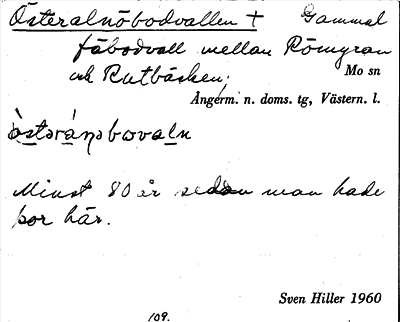 Österalnöbodvallen + Gammal
fäbodvall mellan Römyran
och Rutbäcken.
Mo sn
Ångerm. n. doms. tg, Västern. l.
Minst 80 år sedan man hade
bor här.
Sven Hiller 1960
109.